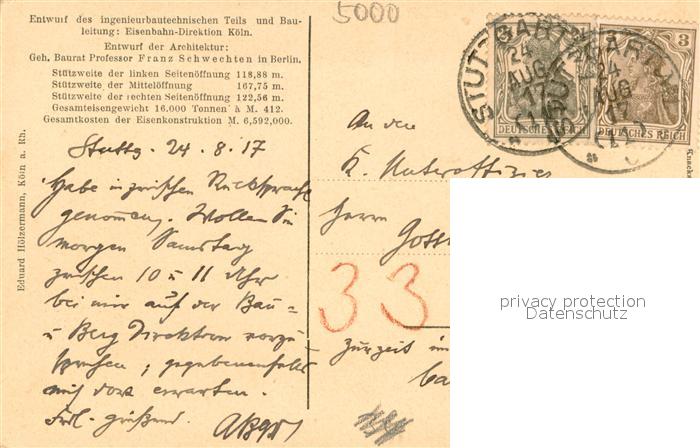 5000
Entwurf des ingenieurbautechnischen Teils und Bau-
leitung: Eisenbahn-Direktion Köln.
Entwurf der Architektur:
Geh. Baurat Professor Franz Schwechten in Berlin.
Stützweite der linken Seitenöffnung 118,88 m.
Stützweite der Mittelöffnung 167,75 m.
Stützweite der rechten Seitenöffnung 122,56 m.
Gesamteisengewicht 16.000 Tonnen à M. 412.
Gesamtkosten der Eisenkonstruktion M. 6,592,000.
Eduard Hölzermann, Köln a. Rh.
Stuttg. 24.8.17
Habe inzwischen Rücksprache
genommen. Wollen Sie
morgen Samstag
zwischen 10 u 11 Uhr
bei mir auf der Bau-
u Berg Direktion vorzu
sprechen, gegebenenfalls
mich dort erwarten.
Frdl. grüßend
STUTTGART
24
AUG
17
DEUTSCHES REICH
STUTTGART
24
AUG
17
3
DEUTSCHES REICH
An den
K. Unteroffizier
Herrn
33
zurzeit in
privacy protection
Datenschutz